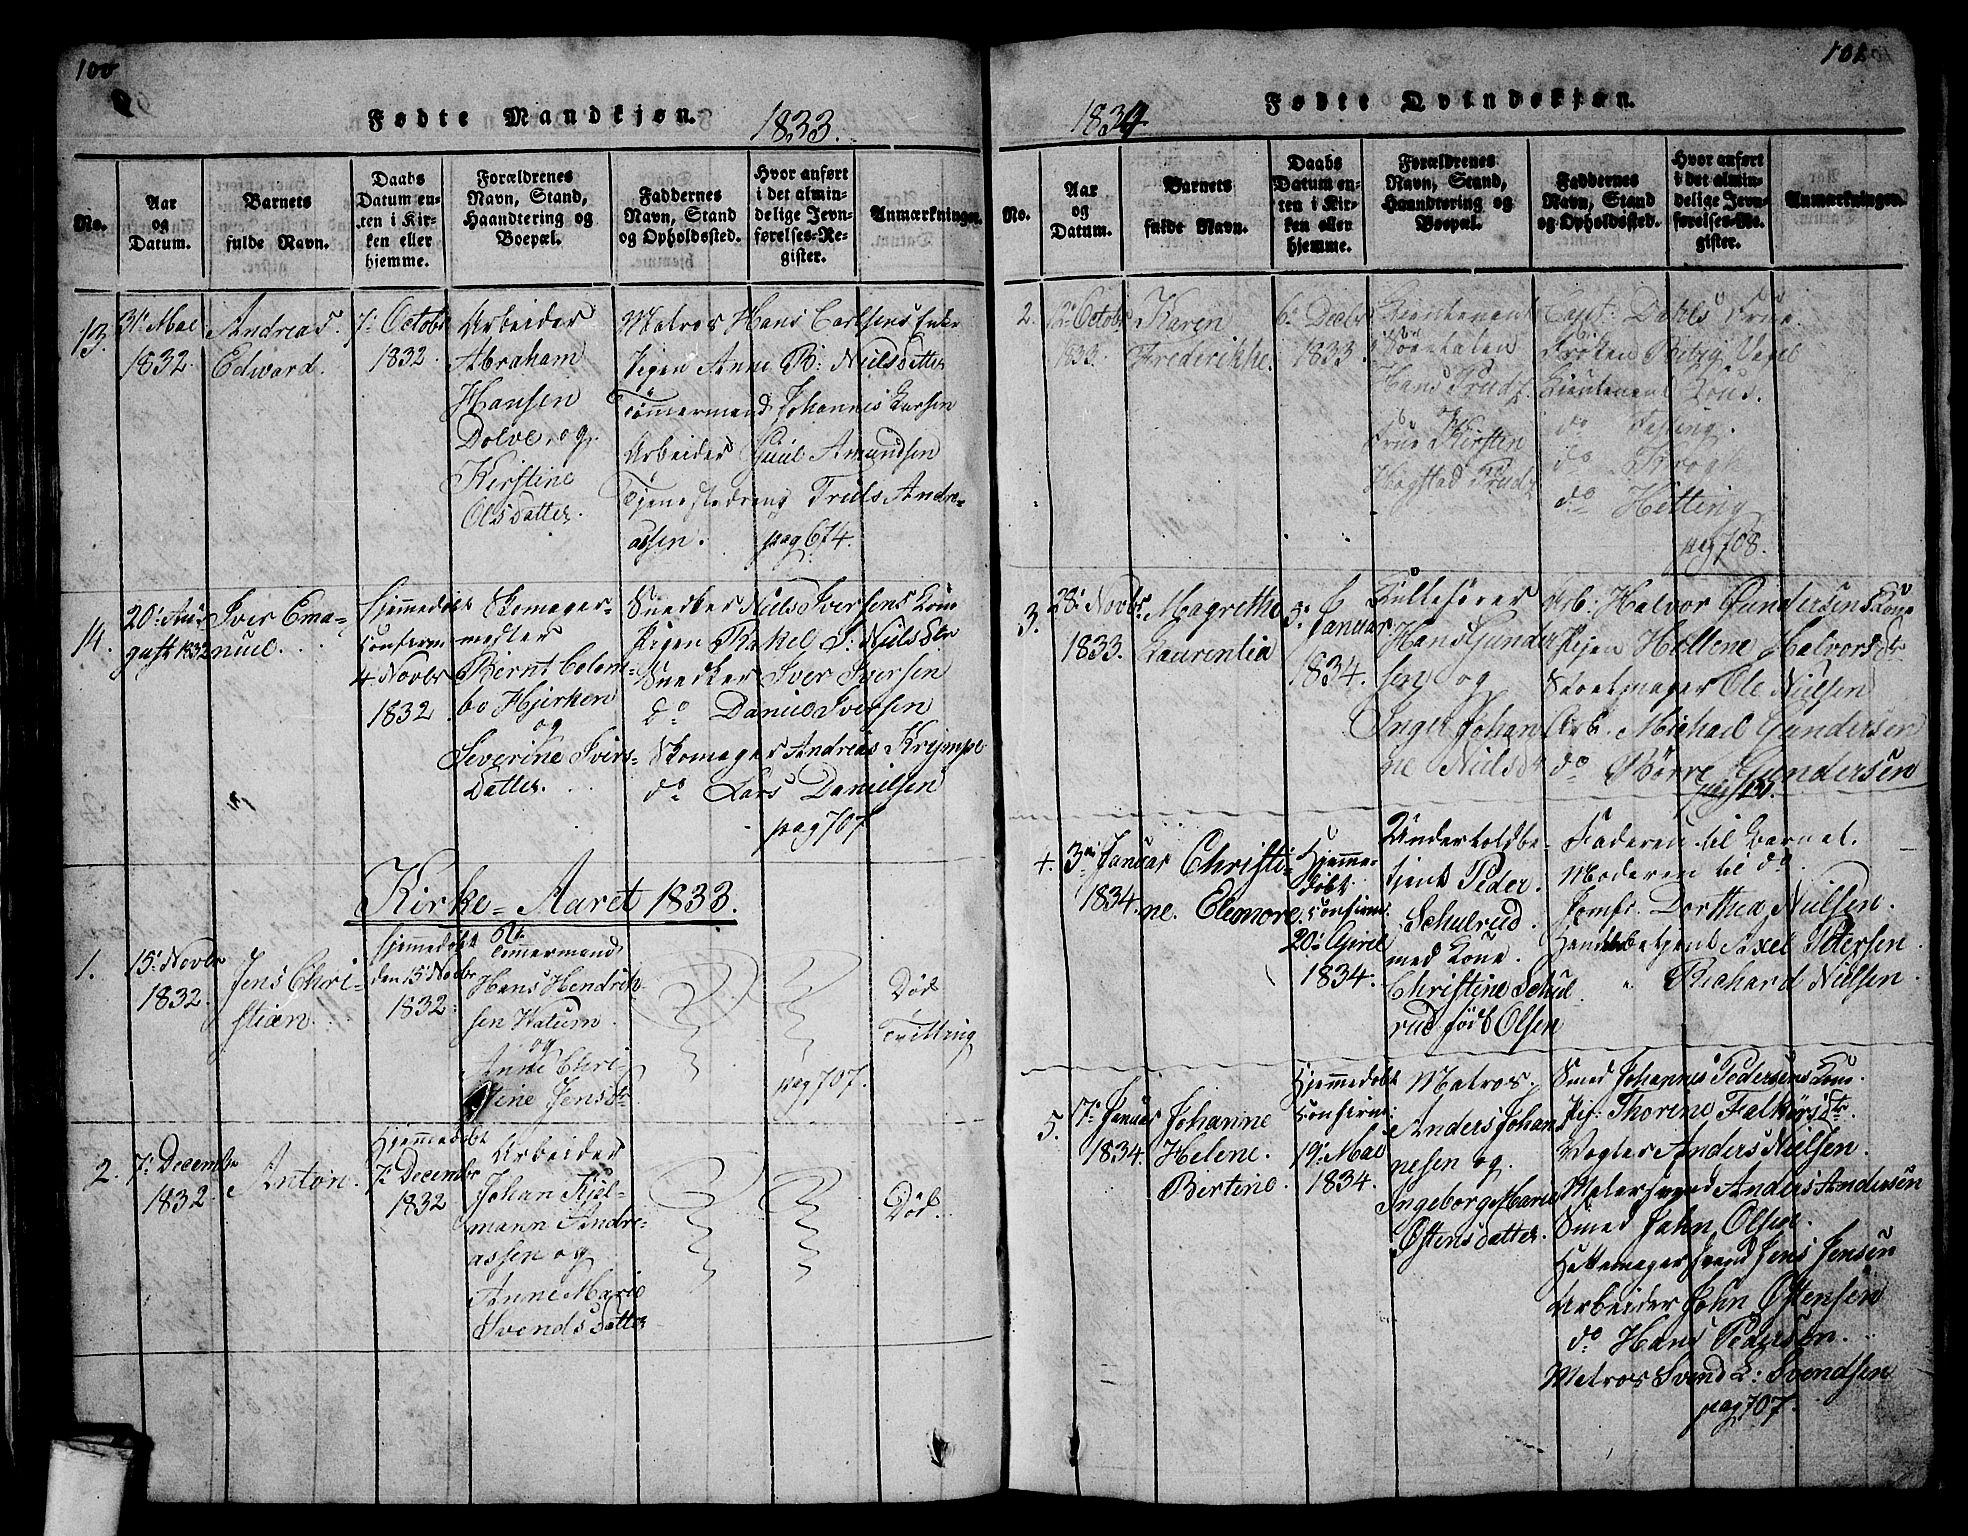 100
Fødte Mandkjøn. 1833.
No.
Aar
og
Datum.
Barnets
fulde Navn.
Daabs
Datum en-
ten i Kir-
ken eller
hjemme.
Forældrenes
Navn, Stand,
Haandtering og
Boepæl.
Faddernes
Navn, Stand
og Opholdssted.
Hvor anført
i det almin-
delige Jevn-
førelses-Re-
gister.
Anmærkninger.
13.
31te Mai
1832.
Andreas
Edward.
7de Octobr
1832.
Arbeider
Abraham
Hansen
Dolve, og
Kirstine
Olsdatter.
Matros Hans Carlsens Enke
Pigen Anne B: Nielsdatter
Tømmermand Johannis Larsen
Arbeider Juul Amundsen
Tjenestedreng Truls Andre-
assen.
pag 674.
14.
20de Au-
gust 1832
Iver Ema-
nuel.
Hjemmedøbt
Confirm
4de Novbr
1832.
Skomager-
mester
Bernt Colom-
bo Hjerken
og
Severine Ivers-
datter.
Snedker Niels Iversens Kone
Pigen Rakel S: Nielsdtr
Snedker Iver Iversen
do Daniel Iversen
Skomager Andreas Krympe
do Lars Danielsen
pag 707
Kirke-Aaret 1833.
1.
15de Novbr
1832.
Jens Chri-
stian.
Hjemmedøbt
den 15de Novbr
1832.
Tømmermand
Hans Hendrik-
sen Natum
og
Anne Chri-
stine Jensdtr
pag 707.
Død
Tvilling
2.
7de Decembr
1832.
Anton.
Hjemmedøbt
7de Decembr
1832
Arbeider
Johan Kjel-
mann Andre-
assen og
Anne Marie
Svendsdatter
Død.
101
1834
Fødte Qvindekjøn.
No.
Aar
og
Datum.
Barnets
fulde Navn.
Daabs
Datum en-
ten i Kir-
ken eller
hjemme.
Forældrenes
Navn, Stand,
Haandtering og
Boepæl.
Faddernes
Navn, Stand
og Opholdssted.
Hvor anført
i det almin-
delige Jevn-
førelses-Re-
gister.
Anmærkninger.
2.
12te Octobr
1833.
Karen
Frederikke.
6te Decbr
1833.
Lieutenant
Søeetaten
Hans Prydz
Frue Kirsten
Hagstad Prydz
Capt: Dahls Frue.
Frøken Betzy
Lieutenant Lous.
do Fasting.
do Krogh
do Hetting
pag 708.
3.
28de Novbr
1833.
Magrethe
Laurentia
5te
Januar
1834.
Kullefører
Hans Gunder-
sen og
Inger Johan-
ne Nielsdtr
Arb: Halvor Gundersens Kone
Pigen Hellene Halvorsdtr
Ole Nielsen
Arb. Michael Gundersen
do Børre Gundersen
4.
3die Januar
1834.
Christi-
ne. Eleonore.
Hjemme-
døbt.
confirm.
20de April
1834.
Underholdbe-
tjent Peder
Schulrud
med Kone
Christine Schul-
rud født Olsen
Faderen til Barnet.
Moderen til do
Jomfr. Dorthea Nielsen.
Handelsbetjent Axel Petersen
" Richard Nielsen
5.
7de Januar
1834.
Johanne
Helene.
Birtine.
Hjemmedøbt
Confirm:
19de Mai
1834.
Matros.
Anders Johan-
nesen og
Ingeborg Marie
Ostensdatter.
Smed Johannis Pedersens Kone.
Pig: Thorine Falkørsdtr.
Vogter Anders Nielsen.
Malersvend Anders Andersen
Smed John Olsen.
Hattemagersvend Jens Jensen
Arbeider John Ostensen
do Hans Pedersen.
Matros Svend L: Svendsen
pag 707.